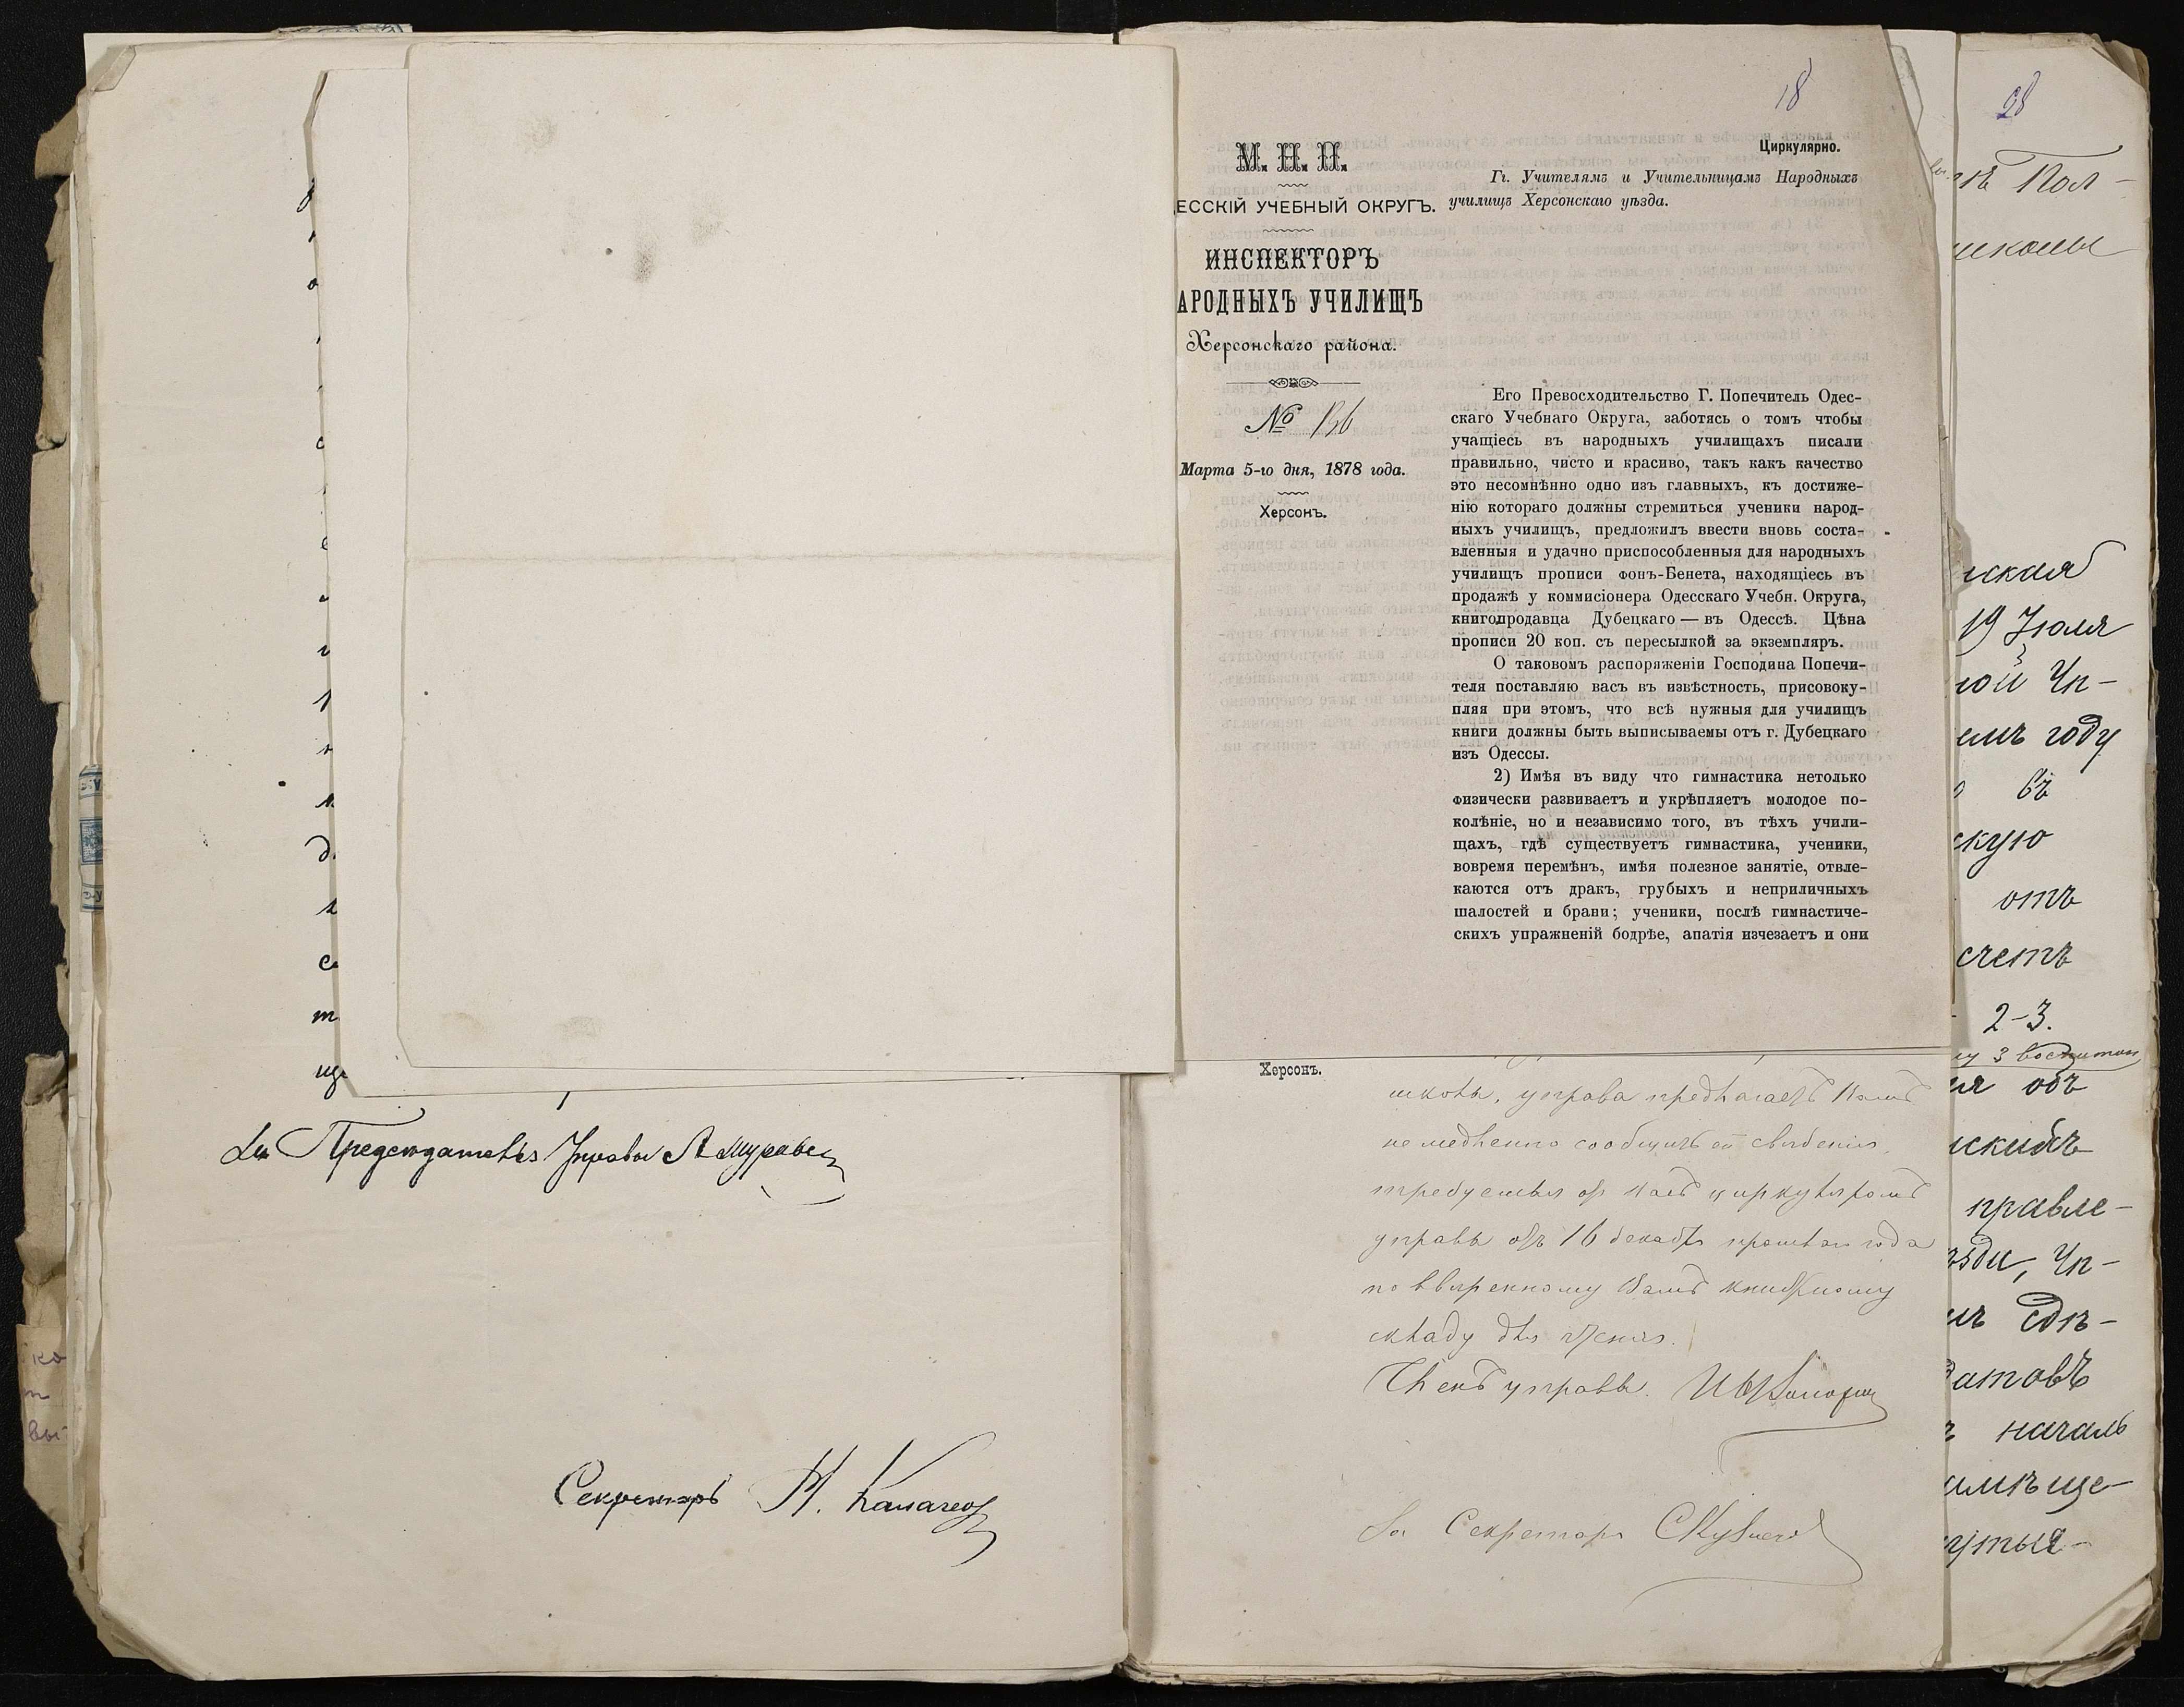 18
М. Н. П.
ЕССКІЙ УЧЕБНЫЙ ОКРУГЪ.
ИНСПЕКТОРЪ
АРОДНЫХЪ УЧИЛИЩЪ
Херсонскаго района.
№
Марта 5-го дня, 1878 года.
Херсонъ.
Циркулярно.
Гг. Учителямъ и Учительницамъ Народныхъ
училищъ Херсонскаго уѣзда.
Его Превосходительство Г. Попечитель Одес-
скаго Учебнаго Округа, заботясь о томъ чтобы
учащіесь въ народныхъ училищахъ писали
правильно, чисто и красиво, такъ какъ качество
это несомнѣнно одно изъ главныхъ, къ достиже-
нію котораго должны стремиться ученики народ-
ныхъ училищъ, предложилъ ввести вновь соста-
вленныя и удачно приспособленныя для народныхъ
училищъ прописи фонъ-Бенета, находящіесь въ
продажѣ у коммисіонера Одесскаго Учебн. Округа,
книгопродавца Дубецкаго — въ Одессѣ. Цѣна
прописи 20 коп. съ пересылкой за экземпляръ.
О таковомъ распоряженіи Господина Попечи-
теля поставляю васъ въ извѣстность, присовоку-
пляя при этомъ, что всѣ нужныя для училищъ
книги должны быть выписываемы отъ г. Дубецкаго
изъ Одессы.
2) Имѣя въ виду что гимнастика нетолько
физически развиваетъ и укрѣпляетъ молодое по-
колѣніе, но и независимо того, въ тѣхъ учили-
щахъ, гдѣ существуетъ гимнастика, ученики,
вовремя перемѣнъ, имѣя полезное занятіе, отвле-
каются отъ дракъ, грубыхъ и неприличныхъ
шалостей и брани; ученики, послѣ гимнастиче-
скихъ упражненій бодрѣе, апатія изчезаетъ и они
Херсонъ.
школы, управа предлагаетъ Вамъ
немедленно сообщить ей свѣденія,
требуемыя отъ Васъ циркуляромъ
управы отъ 16 декабря прошлаго года
по ввѣренному Вамъ книжному
складу для чтенія.
Членъ управы.
За Секретаря
Предсѣдателя Управы А Муравьев
Секретарь Н. Калачев
28
Пол-
школы
ская
19 Іюля
ной Уп-
емъ году
въ
скую
отъ
счетъ
2-3.
3
объ
правле-
Уп-
сдѣ-
началь